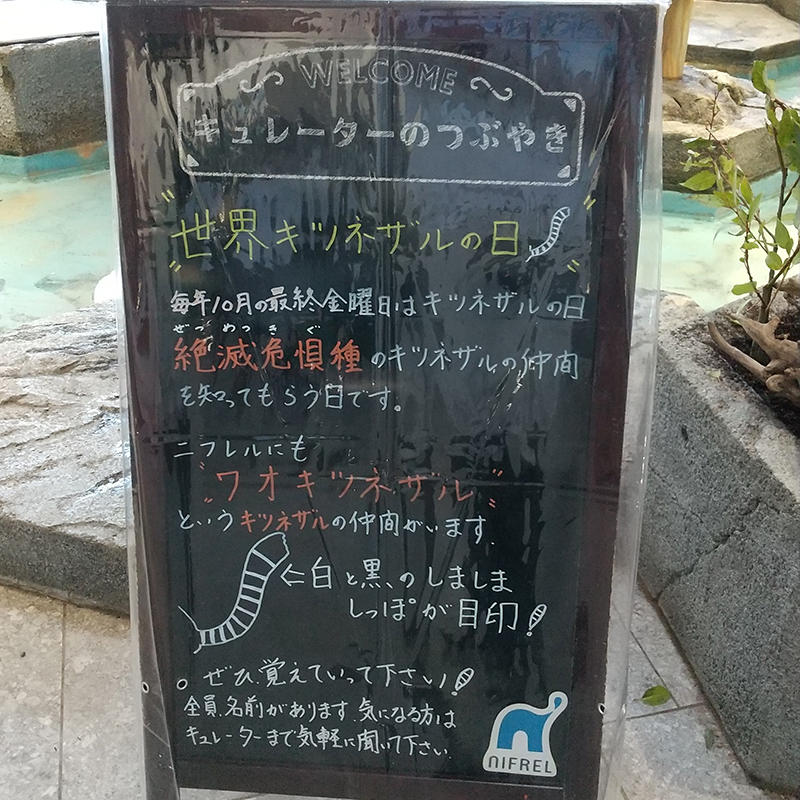 WELCOME
キュレーターのつぶやき
世界キツネザルの日
毎年10月の最終金曜日はキツネザルの日
ぜつめつきぐ
絶滅危惧種のキツネザルの仲間
を知ってもらう日です。
ニフレルにも
ワオキツネザル
というキツネザルの仲間がいます.
⇐白と黒のしましま
しっぽが目印!
ぜひ覚えていって下さい!
全員名前があります.気になる方は
キュレーターまで気軽に聞いて下さい.
NIFREL